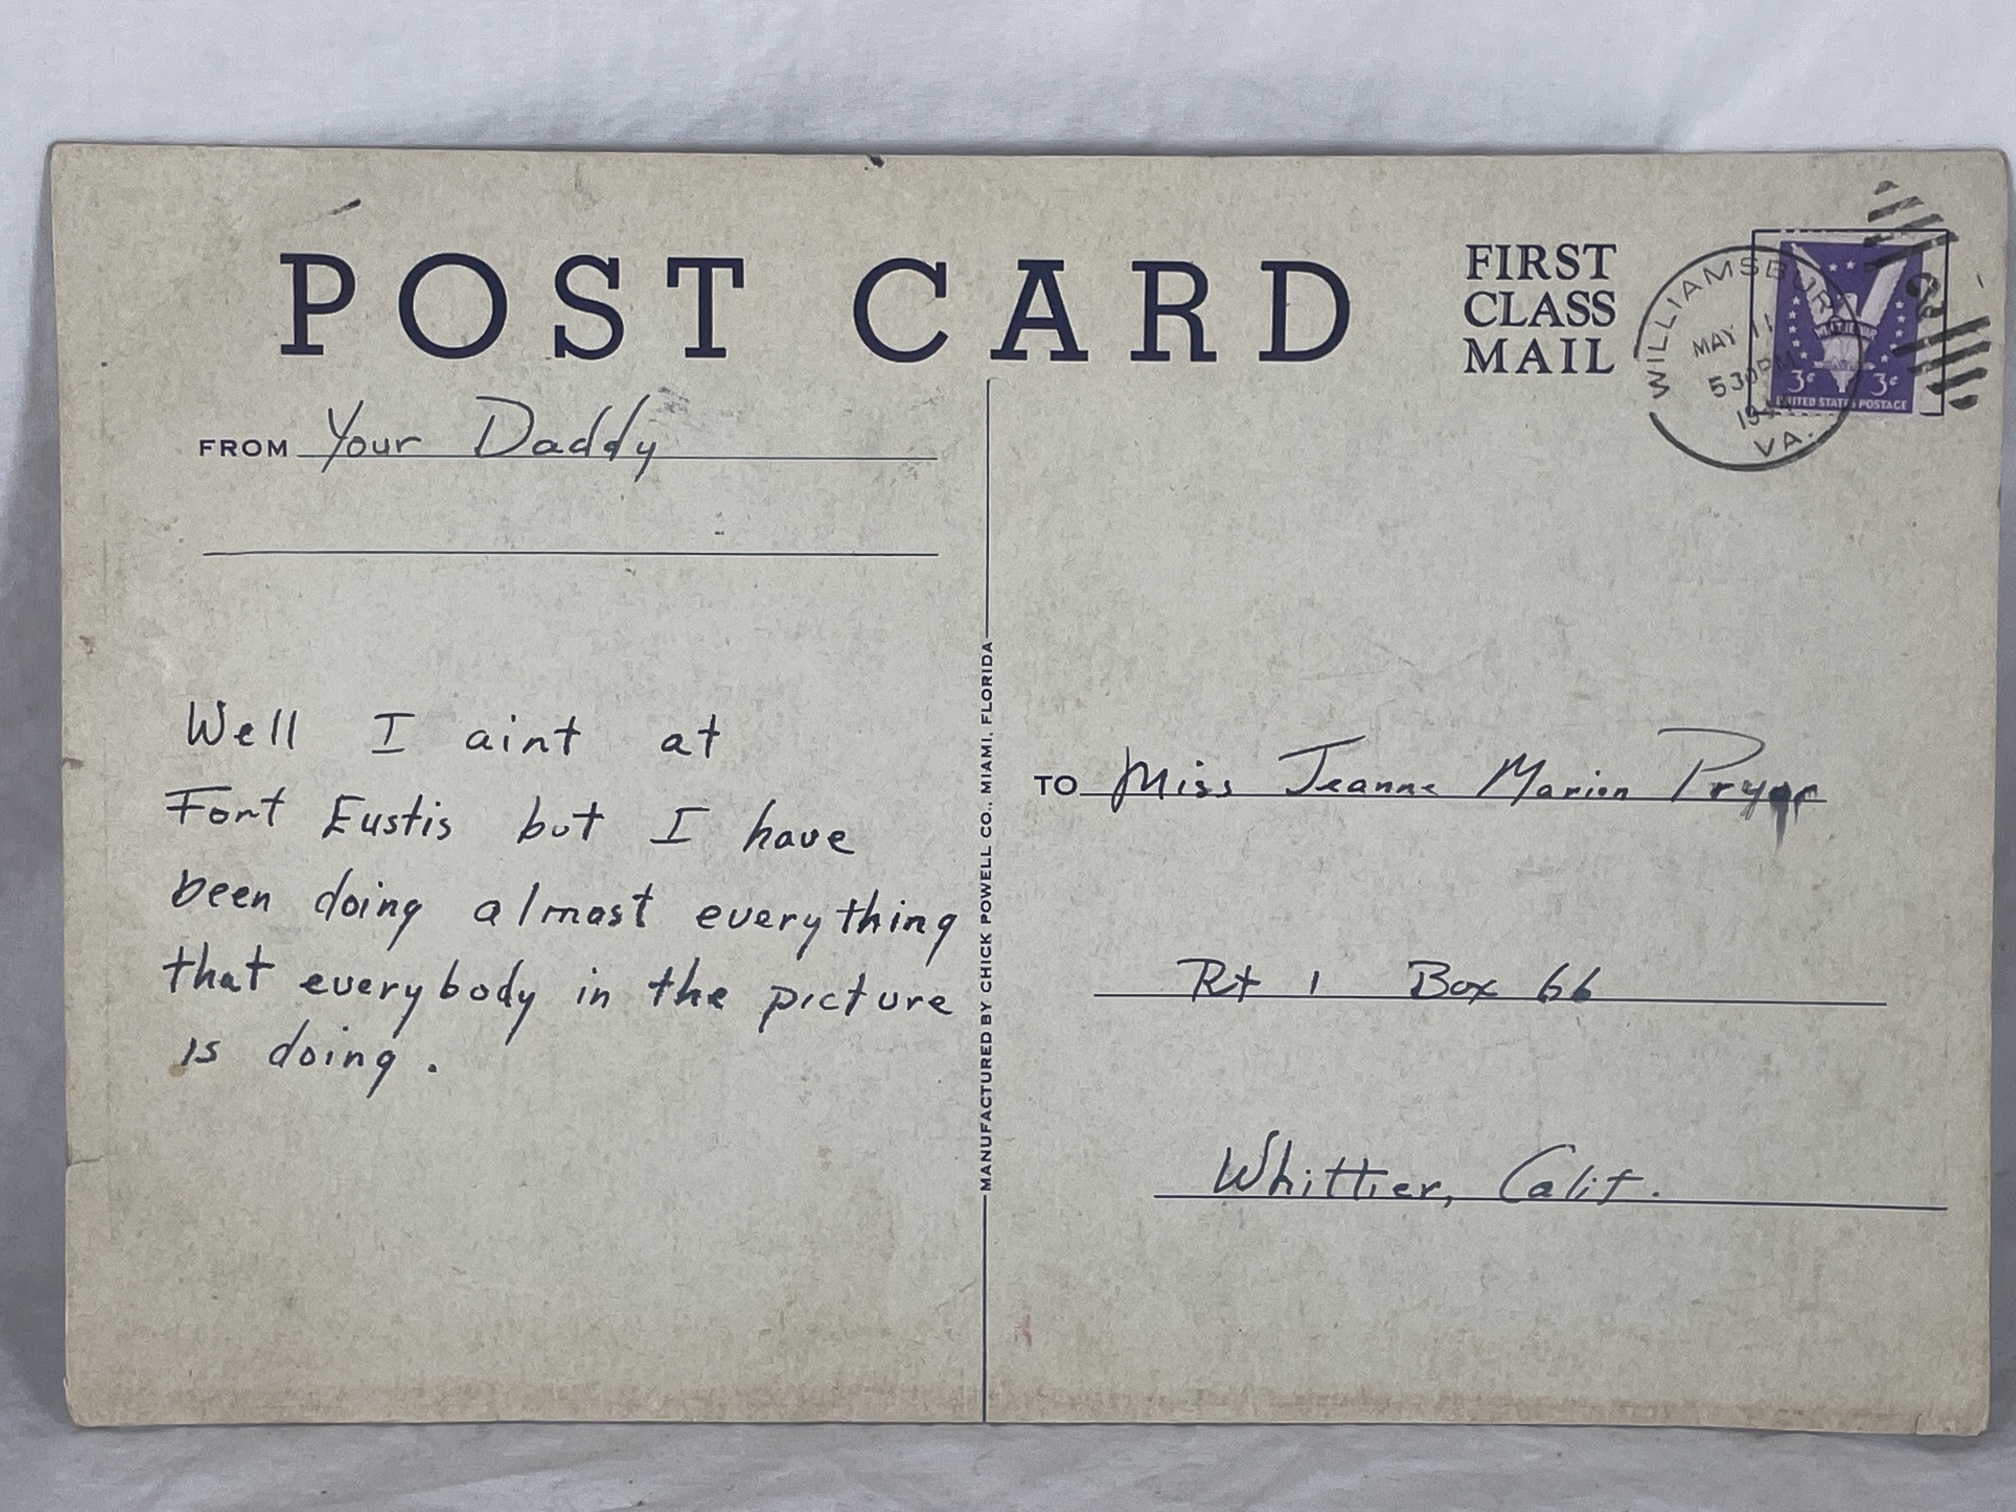 POST CARD
FIRST
CLASS
MAIL
WILLIAMSBURG
MAY 11
530 PM
VA.
3¢ 3¢
UNITED STATES POSTAGE
FROM Your Daddy
Well I aint at
Fort Eustis but I have
been doing almost everything
that everybody in the picture
is doing.
MANUFACTURED BY CHICK POWELL CO., MIAMI, FLORIDA
TO Miss Jeanne Marion Pryor
Rt 1 Box 66
Whittier, Calif.